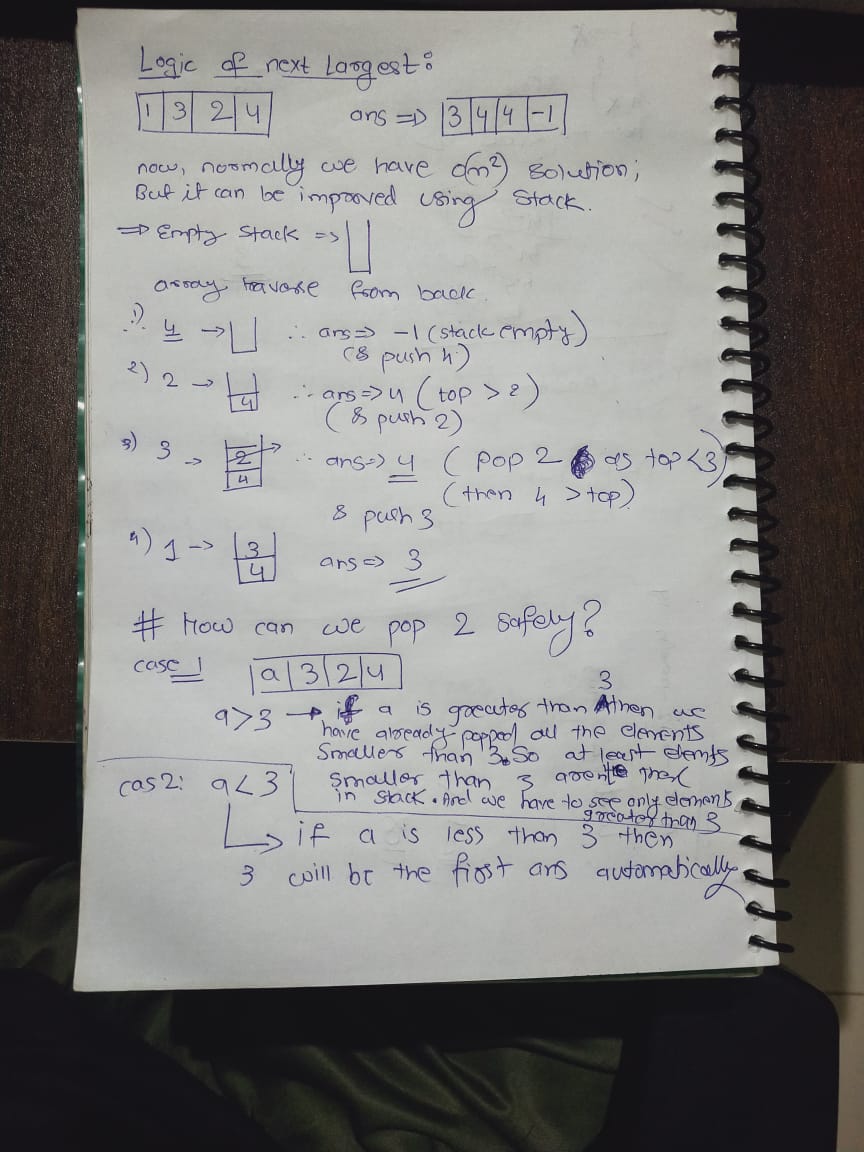 Logic of next Largest:
1 3 2 4 ans => 3 4 4 -1
now, normally we have O(n²) solution;
But it can be improved using Stack.
=> Empty Stack =>
array travose from back.
1) 4 → ∴ ans => -1 (stack empty)
(& push 4)
2) 2 → 4 ∴ ans => 4 (top > 2)
(& push 2)
3) 3 → 2 4 ∴ ans => 4 (pop 2 as top < 3)
(then 4 > top)
& push 3
4) 1 → 3 4 ans => 3
# How can we pop 2 safely?
case 1 a 3 2 4
a > 3 → if a is greater than 3 then we
have already popped all the elements
smaller than 3. So at least elemts
smaller than 3 arent
in stack. And we have to see only elements
greater than 3
cas 2: a < 3
if a is less than 3 then
3 will be the first ans automatically